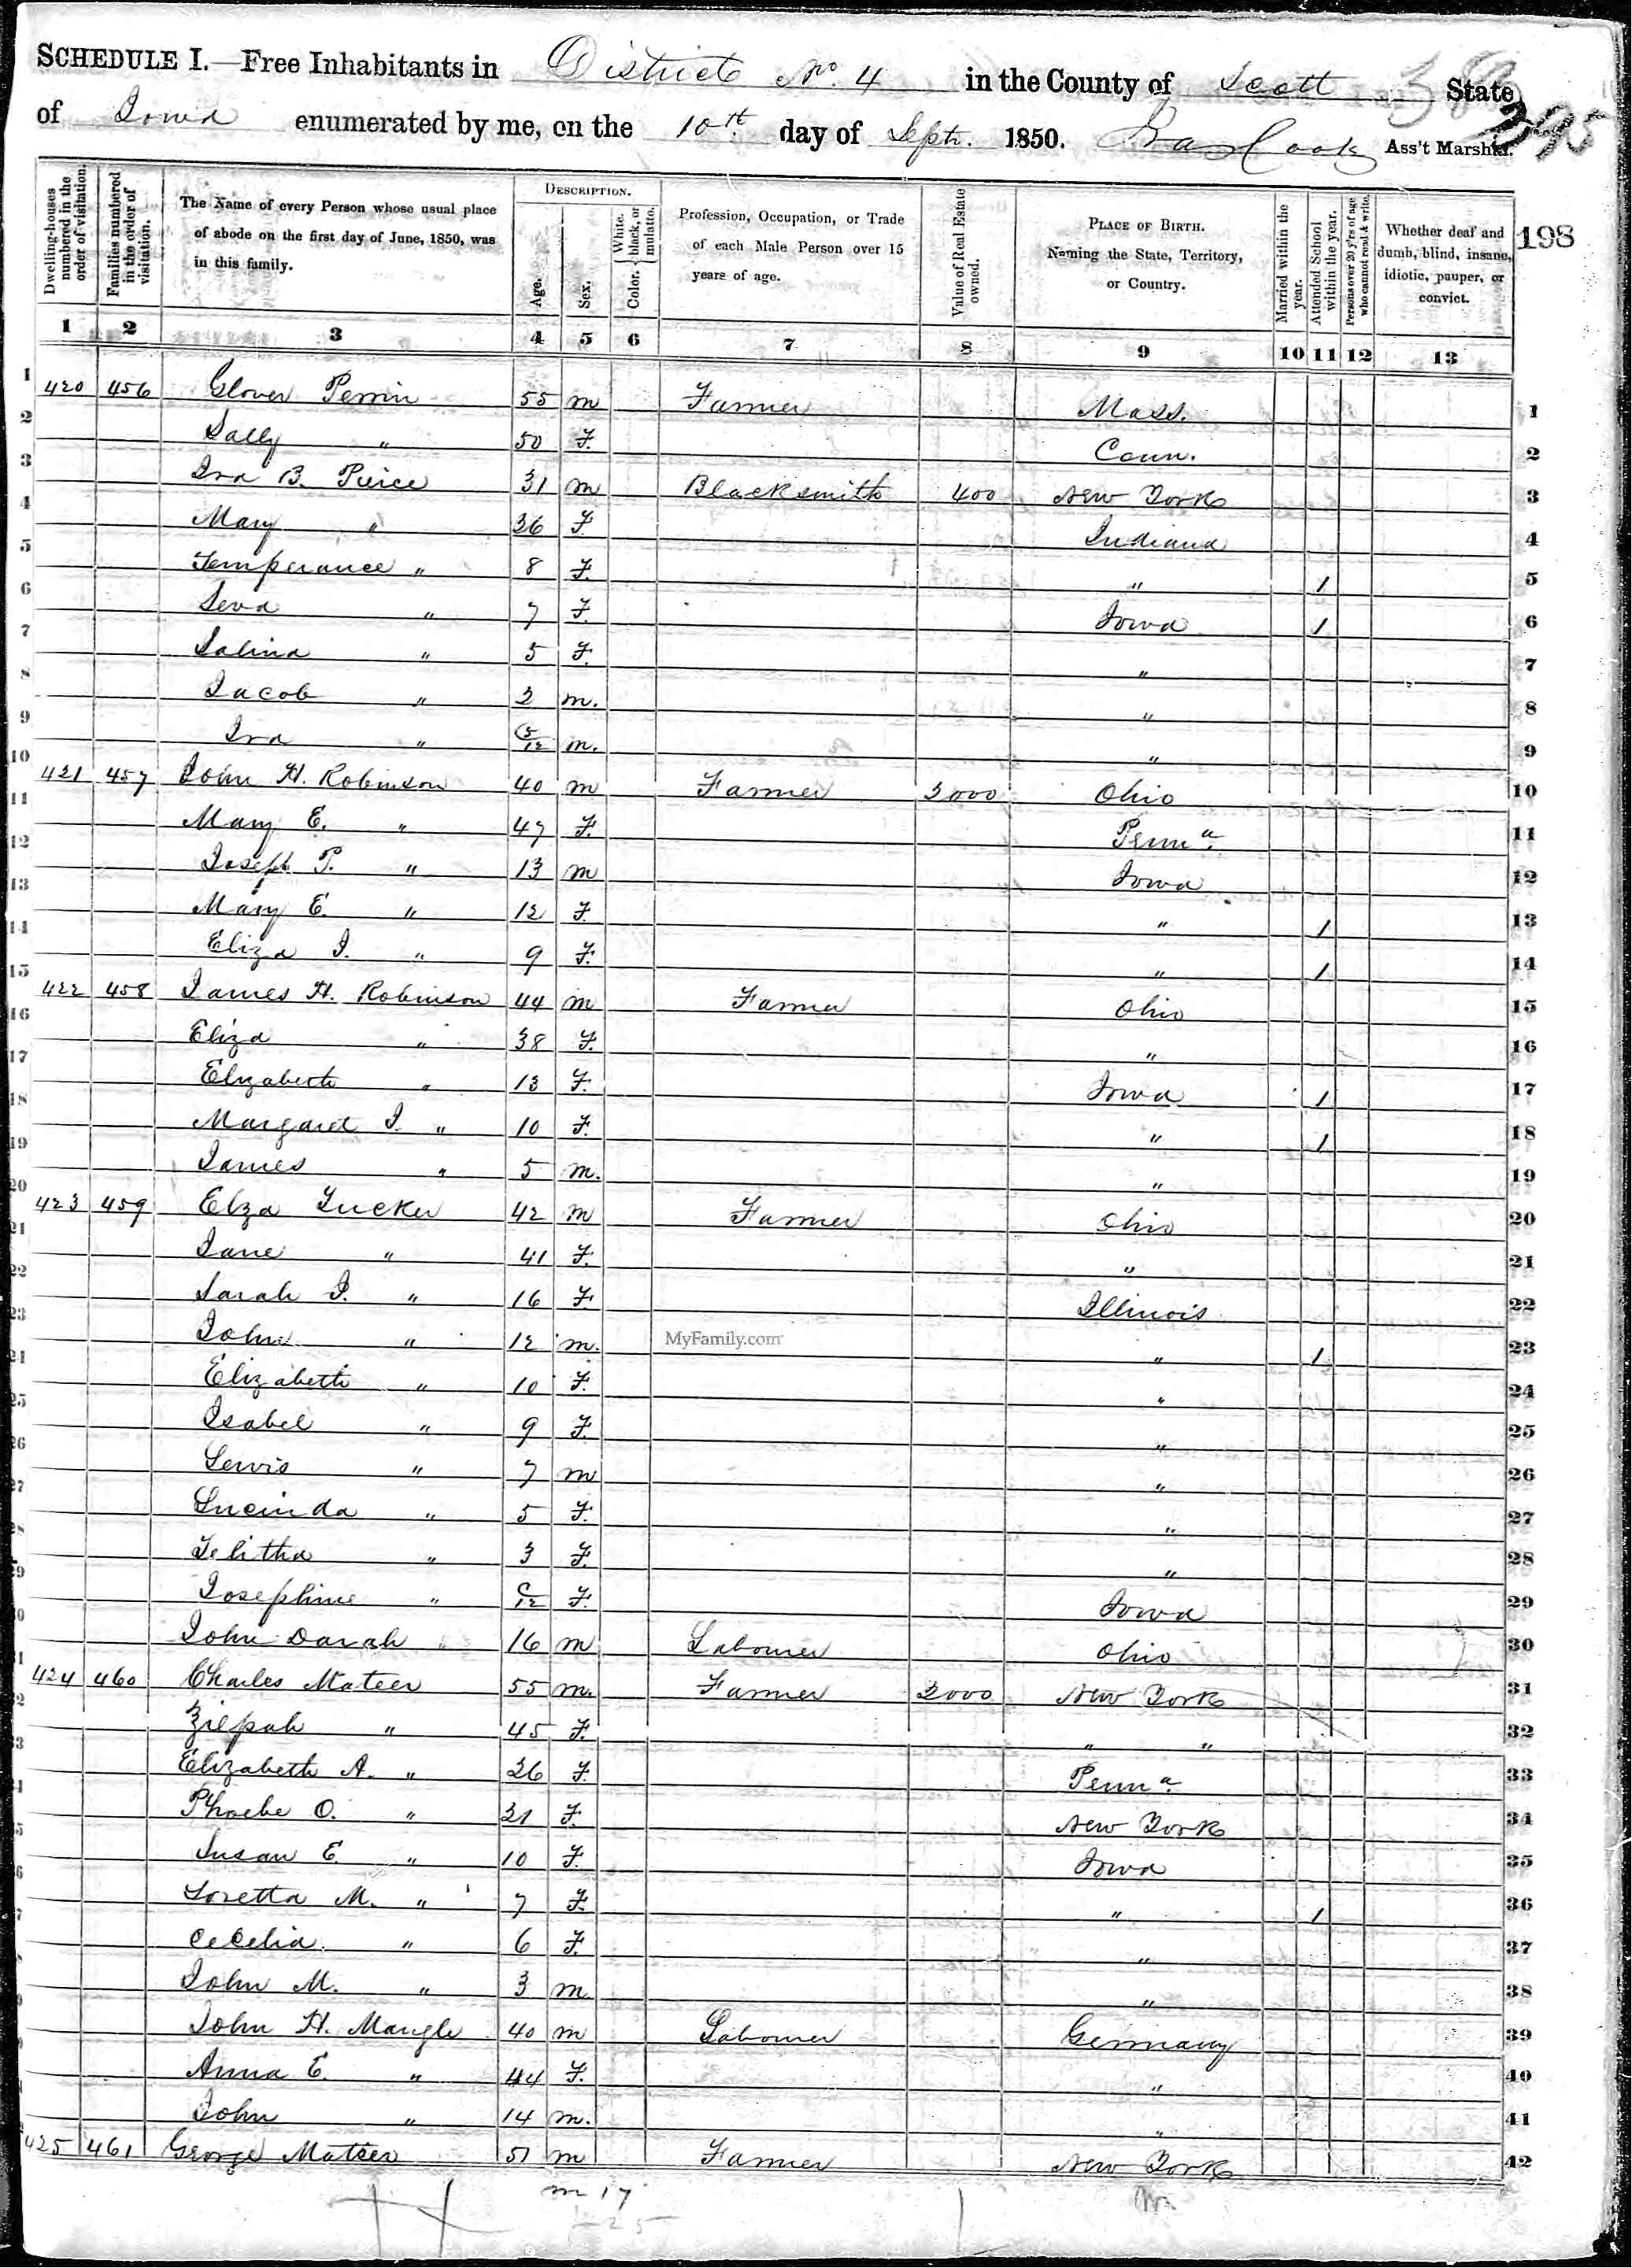 SCHEDULE I.—Free Inhabitants in District No. 4 in the County of Scott State
of Iowa enumerated by me, on the 10th day of Sept. 1850. Ira Cook Ass't Marshal.
395
198
Dwelling-houses numbered in the order of visitation.
Families numbered in the order of visitation.
The Name of every Person whose usual place of abode on the first day of June, 1850, was in this family.
DESCRIPTION.
Age.
Sex.
Color. { White, black, or mulatto.
Profession, Occupation, or Trade of each Male Person over 15 years of age.
Value of Real Estate owned.
PLACE OF BIRTH. Naming the State, Territory, or Country.
Married within the year.
Attended School within the year.
Persons over 20 y'rs of age who cannot read & write.
Whether deaf and dumb, blind, insane, idiotic, pauper, or convict.
1 2 3 4 5 6 7 8 9 10 11 12 13
1 420 456 Glover Perrin 55 m Farmer Mass. 1
2 Sally " 50 F. Conn. 2
3 Ira B. Pierce 31 m Blacksmith 400 New York 3
4 Mary " 36 F Indiana 4
5 Temperance " 8 F. " 1 5
6 Seva " 7 F. Iowa 1 6
7 Salina " 5 F. " 7
8 Jacob " 2 m. " 8
9 Ira " 5/12 m. " 9
10 421 457 John H. Robinson 40 m Farmer 3000 Ohio 10
11 Mary E. " 47 F. Penna. 11
12 Joseph P. " 13 m Iowa 12
13 Mary E. " 12 F. " 1 13
14 Eliza J. " 9 F. " 1 14
15 422 458 James H. Robinson 44 m Farmer Ohio 15
16 Eliza " 38 F. " 16
17 Elizabeth " 13 F. Iowa 1 17
18 Margaret J. " 10 F. " 1 18
19 James " 5 m. " 19
20 423 459 Elza Tucker 42 m Farmer Ohio 20
21 Jane " 41 F. " 21
22 Sarah J. " 16 F. Illinois 22
23 John " 12 m. MyFamily.com " 1 23
Elizabeth " 10 F. " 24
25 Isabel " 9 F. " 25
26 Lewis " 7 m " 26
27 Lucinda " 5 F. " 27
Telitha " 3 F. " 28
Josephine " F. Iowa 29
John Darah 16 m Labourer Ohio 30
424 460 Charles Mateer 55 m. Farmer 2000 New York 31
Zilpah " 45 F. " " 32
Elizabeth A. " 26 F. Penna. 33
Phoebe O. " 21 F. New York 34
Susan E. " 10 F. Iowa 35
Loretta M. " 7 F. " 1 36
Cecelia " 6 F. " 37
John M. " 3 m " 38
John H. Mangle 40 m Labourer Germany 39
Anna E. " 44 F. " 40
John " 14 m. " 41
425 461 George Mateer 51 m Farmer New York 42
m 17
25